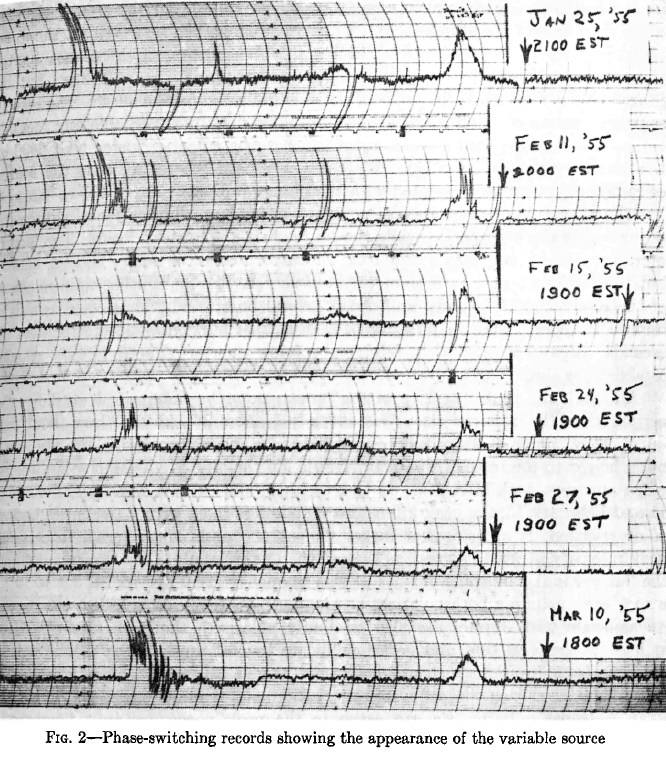 JAN 25, '55
2100 EST
FEB 11, '55
2000 EST
FEB 15, '55
1900 EST
FEB 24, '55
1900 EST
FEB 27, '55
1900 EST
MAR 10, '55
1800 EST
FIG. 2—Phase-switching records showing the appearance of the variable source